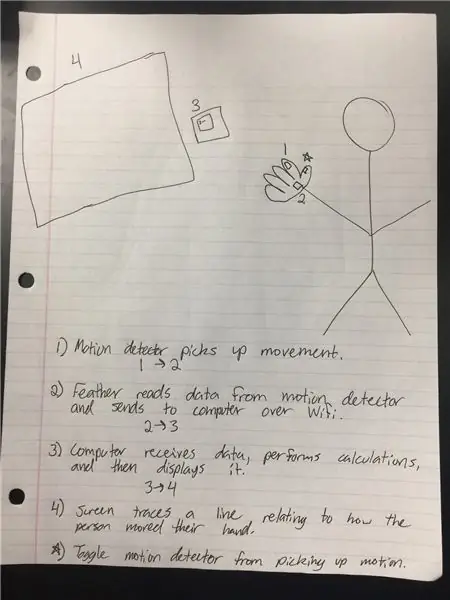 4
3
1
☆
2
1) Motion detector picks up movement.
1 → 2
2) Feather reads data from motion detector
and sends to computer over Wifi.
2 → 3
3) Computer receives data, performs calculations,
and then displays it.
3 → 4
4) Screen traces a line relating to how the
person moved their hand.
☆) Toggle motion detector from picking up motion.